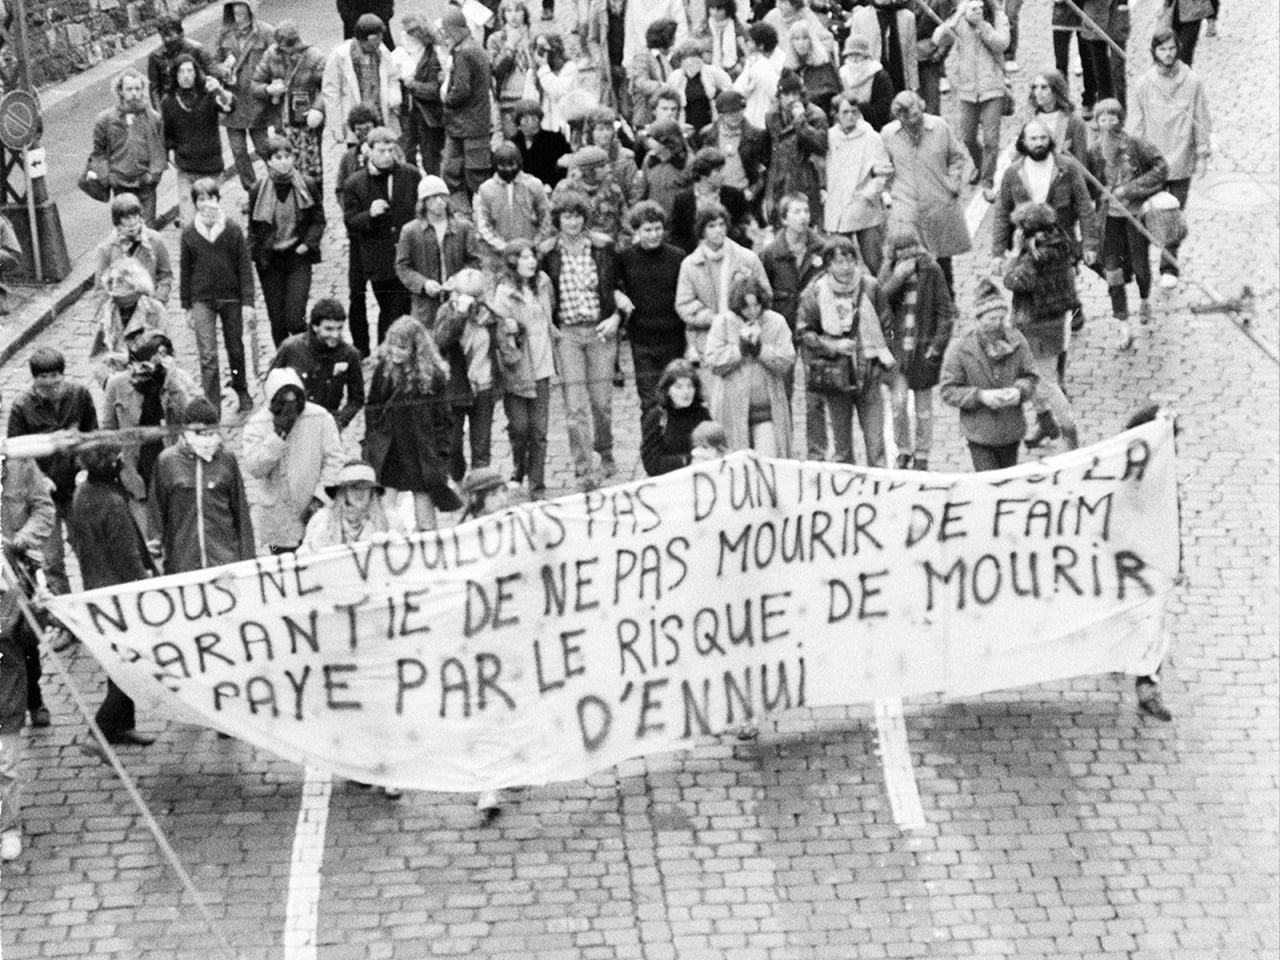 NOUS NE VOULONS PAS D'UN MONDE OU LA
GARANTIE DE NE PAS MOURIR DE FAIM
PAYE PAR LE RISQUE DE MOURIR
D'ENNUI